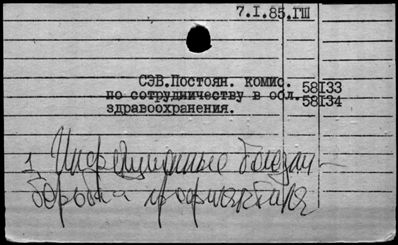 7.I.85.ГШ
СЭВ.Постоян. комис. 58I33
по сотрудничеству в обл. 58I34
здравоохранения.
1. Инфекционные болезни –
борьба и профилактика